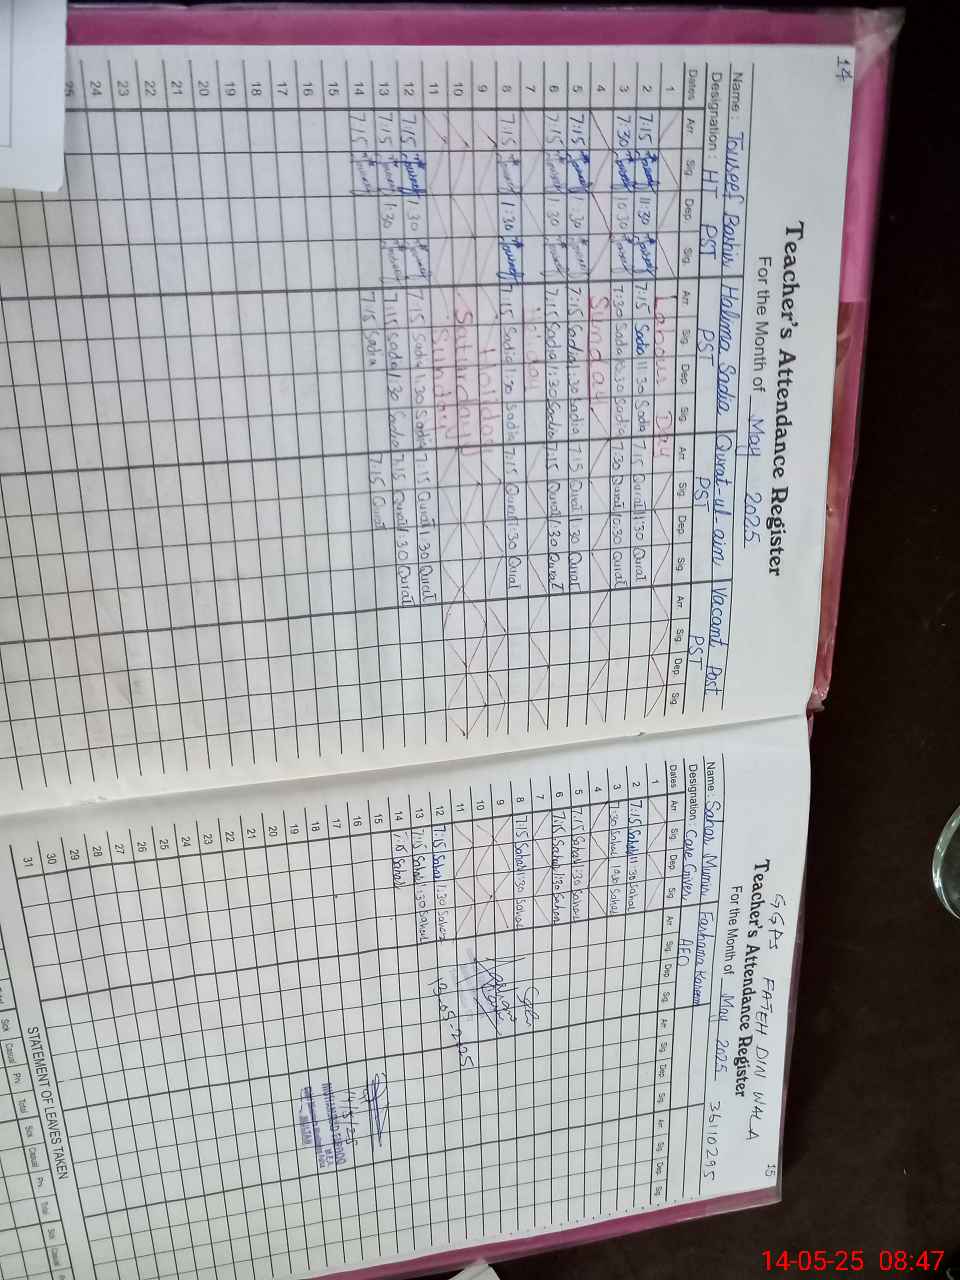 14
Teacher's Attendance Register
For the Month of May 2025
Name: Touseef Bashir Halima Sadia Qurat-ul-ain Vacant Post
Designation: HT PST PST PST PST
Dates Arr. Sig. Dep. Sig. Arr. Sig. Dep. Sig. Arr. Sig. Dep. Sig. Arr. Sig. Dep. Sig.
1 Labour Day
2 7:15 11:30 7:15 Sadia 11:30 Sadia 7:15 Qurat 11:30 Qurat
3 7:30 10:30 7:30 Sadia 10:30 Sadia 7:30 Qurat 10:30 Qurat
4 Sunday
5 7:15 1:30 7:15 Sadia 1:30 Sadia 7:15 Qurat 1:30 Qurat
6 7:15 1:30 7:15 Sadia 1:30 Sadia 7:15 Qurat 1:30 Qurat
7 Holiday
8 7:15 1:30 7:15 Sadia 1:30 Sadia 7:15 Qurat 1:30 Qurat
9 Holiday
10 Saturday
11 Sunday
12 7:15 1:30 7:15 Sadia 1:30 Sadia 7:15 Qurat 1:30 Qurat
13 7:15 1:30 7:15 Sadia 1:30 Sadia 7:15 Qurat 1:30 Qurat
14 7:15 7:15 Sadia 7:15 Qurat
15
16
17
18
19
20
21
22
23
24
25
15
GGPS FATEH DIN WALA
Teacher's Attendance Register
For the Month of May 2025 36110295
Name: Sahar Munir Farhana Kalsoom
Designation: Care Giver AEO
Dates Arr. Sig. Dep. Sig. Arr. Sig. Dep. Sig. Arr. Sig. Dep. Sig. Arr. Sig. Dep. Sig.
1
2 7:15 Sahar 11:30 Sahar
3 7:30 Sahar 10:30 Sahar
4
5 7:15 Sahar 1:30 Sahar
6 7:15 Sahar 1:30 Sahar
7
8 7:15 Sahar 1:30 Sahar
9
10
11
12 7:15 Sahar 1:30 Sahar
13 7:15 Sahar 1:30 Sahar
14 7:15 Sahar
13-05-2025
15
16
17
14/5/25
MEA
18
19
20
21
22
23
24
25
26
27
28
29
30
31
STATEMENT OF LEAVES TAKEN
Sick Casual Priv. Total Sick Casual Priv. Total Sick Casual
14-05-25 08:47